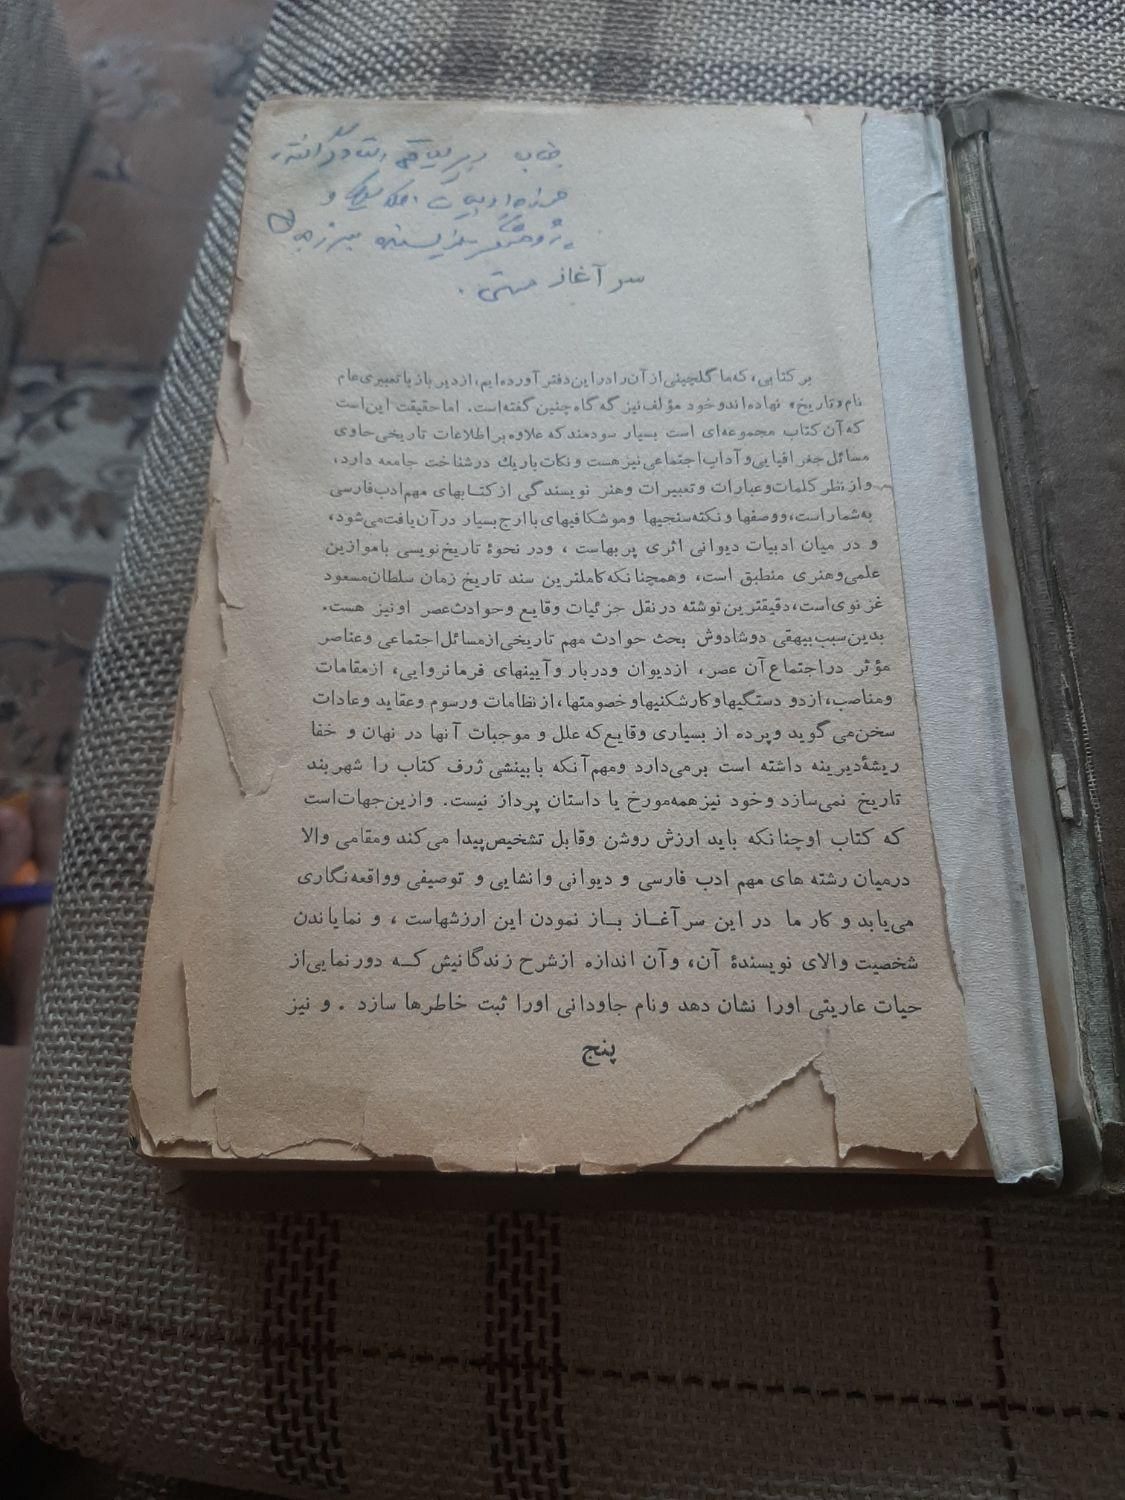 جناب دبیر سیاقی استاد گرانقدر
و
پژوهشگر و نویسنده
سر آغاز
بر کتابی، که ما گلچینی از آن را در این دفتر آورده‌ایم، از دیر باز با تعبیری عام
نام «تاریخ» نهاده‌اند و خود مؤلف نیز گه گاه چنین گفته است. اما حقیقت این است
که آن کتاب مجموعه‌ای است بسیار سودمند که علاوه بر اطلاعات تاریخی حاوی
مسائل جغرافیایی و آداب اجتماعی نیز هست و نکات باریك در شناخت جامعه دارد،
و از نظر کلمات و عبارات و تعبیرات و هنر نویسندگی از کتابهای مهم ادب فارسی
به‌شمار است، و وصفها و نکته‌سنجیها و موشکافیهای با ارج بسیار در آن یافت می‌شود،
و در میان ادبیات دیوانی اثری پر بهاست ، و در نحوهٔ تاریخ‌نویسی با موازین
علمی و هنری منطبق است، و همچنانکه کاملترین سند تاریخ زمان سلطان مسعود
غزنوی است، دقیقترین نوشته در نقل جزئیات وقایع و حوادث عصر او نیز هست.
بدین سبب بیهقی دوشادوش بحث حوادث مهم تاریخی از مسائل اجتماعی و عناصر
مؤثر در اجتماع آن عصر، از دیوان و دربار و آیینهای فرمانروایی، از مقامات
و مناصب، از دو دستگیها و کارشکنیها و خصومتها، از نظامات و رسوم و عقاید و عادات
سخن می گوید و پرده از بسیاری وقایع که علل و موجبات آنها در نهان و خفا
ریشهٔ دیرینه داشته است برمی‌دارد و مهم آنکه با بینشی ژرف کتاب را شهر بند
تاریخ نمی‌سازد و خود نیز همه مورخ یا داستان پرداز نیست. و ازین جهات است
که کتاب او چنانکه باید ارزش روشن و قابل تشخیص پیدا می کند و مقامی والا
در میان رشته های مهم ادب فارسی و دیوانی و انشایی و توصیفی و واقعه نگاری
می‌یابد و کار ما در این سرآغاز باز نمودن این ارزشهاست ، و نمایاندن
شخصیت والای نویسندهٔ آن، و آن اندازه از شرح زندگانیش که دور نمایی از
حیات عاریتی او را نشان دهد و نام جاودانی او را ثبت خاطرها سازد . و نیز
پنج